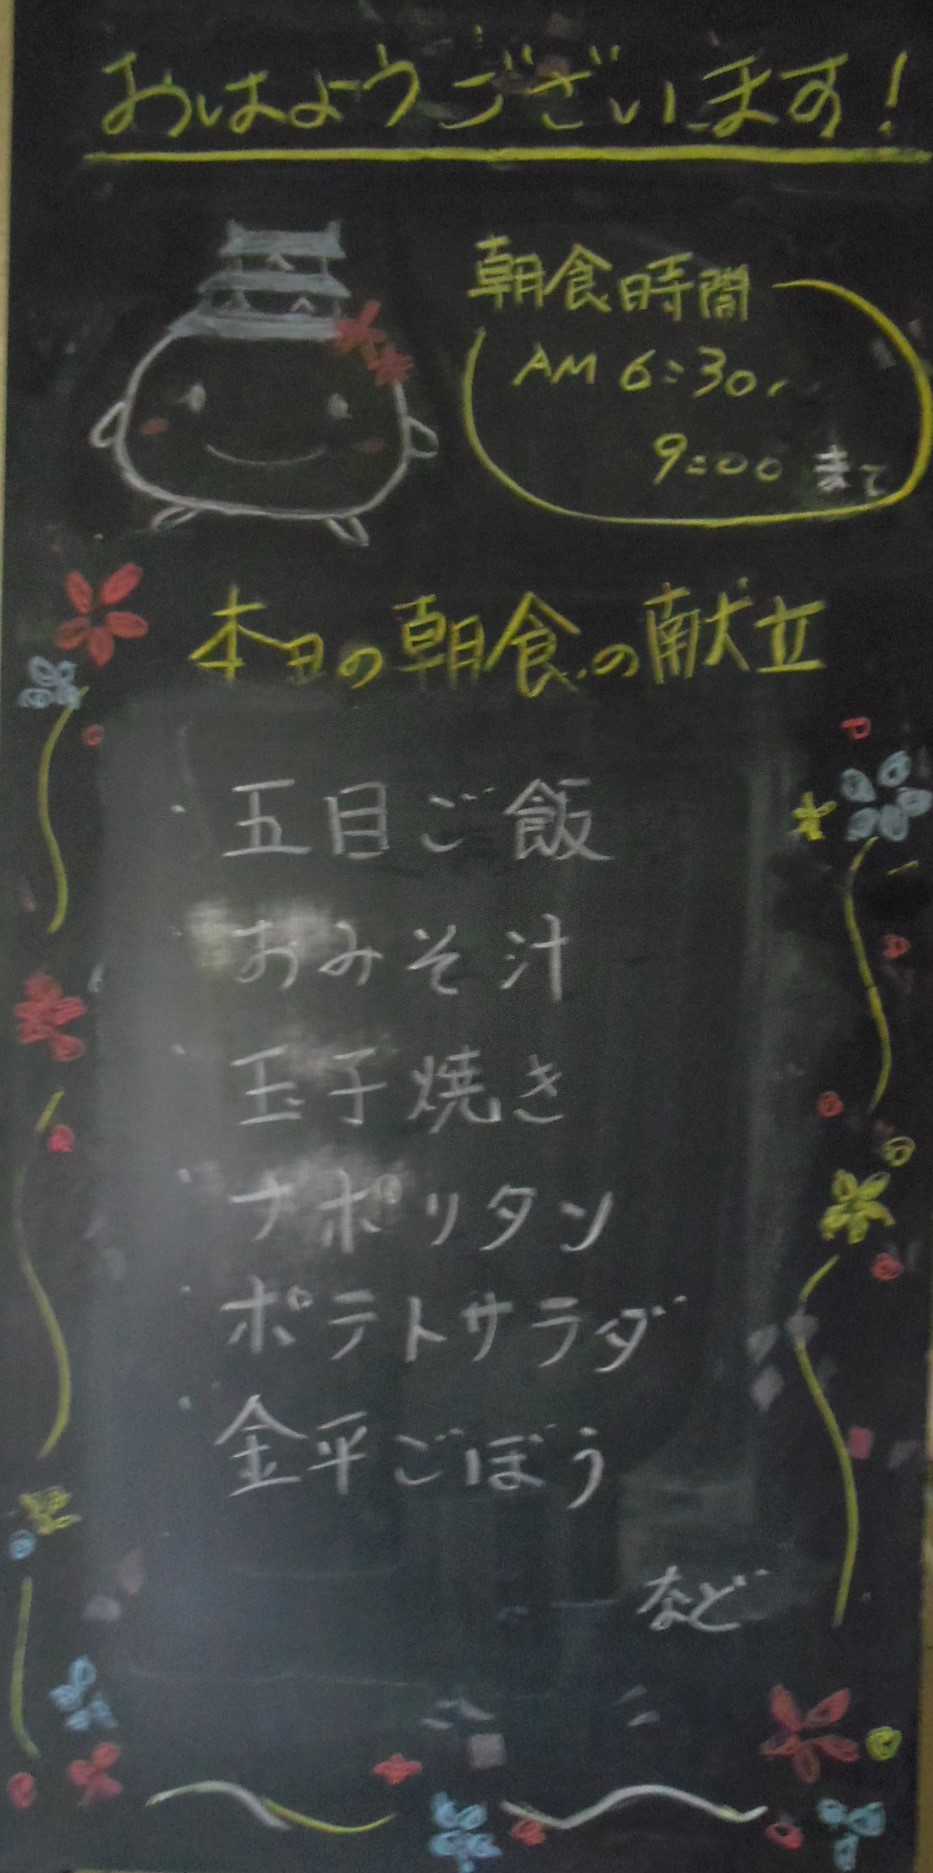 おはようございます!
朝食時間
AM 6:30~
9:00 まで
本日の朝食の献立
・五目ご飯
・おみそ汁
・玉子焼き
・ナポリタン
・ポテトサラダ
・金平ごぼう
など